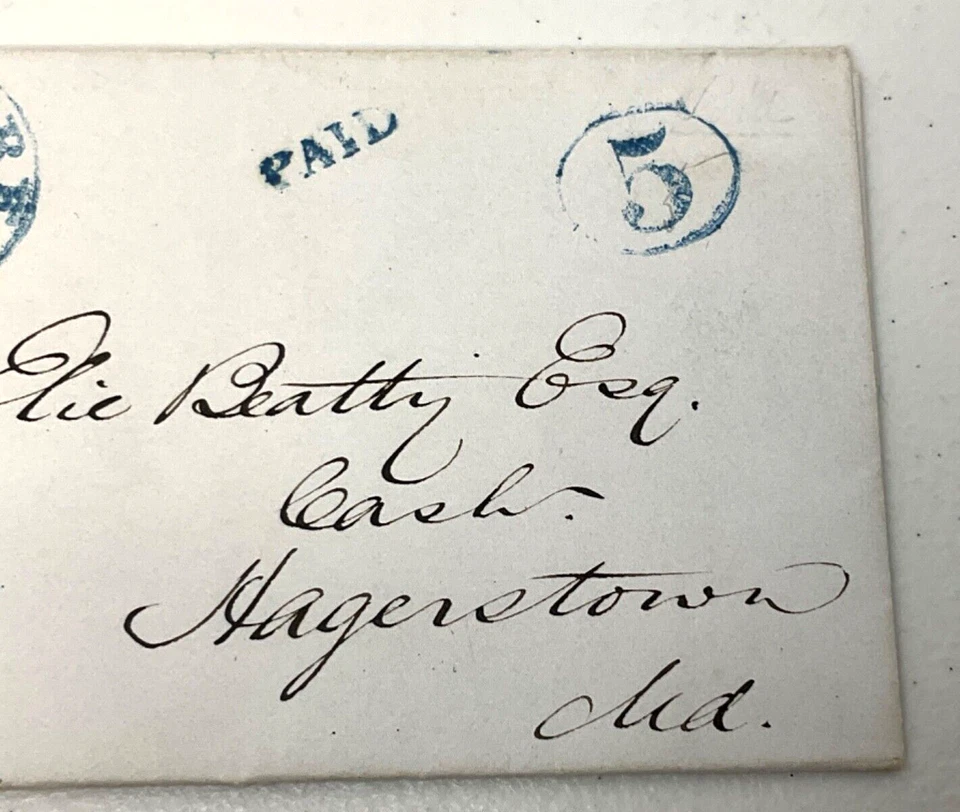 PAID
5
Elie Beatty Esq.
Cash.
Hagerstown
Md.